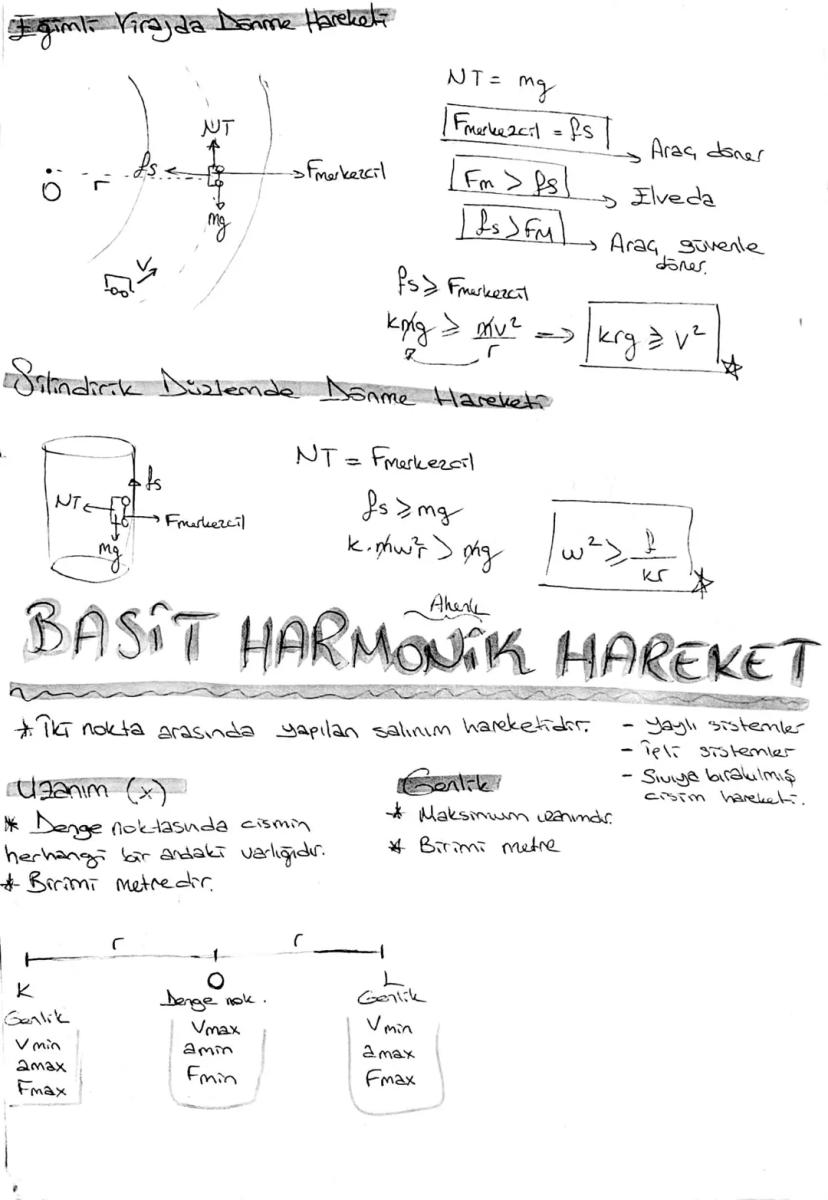 Eğimli Virajda Dönme Hareketi
NT = mg
Fmerkezcil = fs
Araç döner
Fm > fs
Elveda
fs > FM
Araç güvenle
döner.
fs ⩾ Fmerkezcil
kmg ⩾ mv²/r => krg ⩾ v²
NT
fs
Fmerkezcil
O
r
mg
V
Silindirik Düzlemde Dönme Hareketi
NT = Fmerkezcil
fs ⩾ mg
k.mω²r > mg
ω² ⩾ g/kr
fs
NT
Fmerkezcil
mg
Ahenk
BASİT HARMONİK HAREKET
* İki nokta arasında yapılan salınım hareketidir.
- Yaylı sistemler
- İpli sistemler
- Sıvıya bırakılmış
cisim hareketi.
Uzanım (x)
* Denge noktasında cismin
herhangi bir andaki varlığıdır.
* Birimi metredir.
Genlik
* Maksimum uzanımdır.
* Birimi metre
r r
K O L
Genlik Denge nok. Genlik
Vmin Vmax Vmin
amax amin amax
Fmax Fmin Fmax